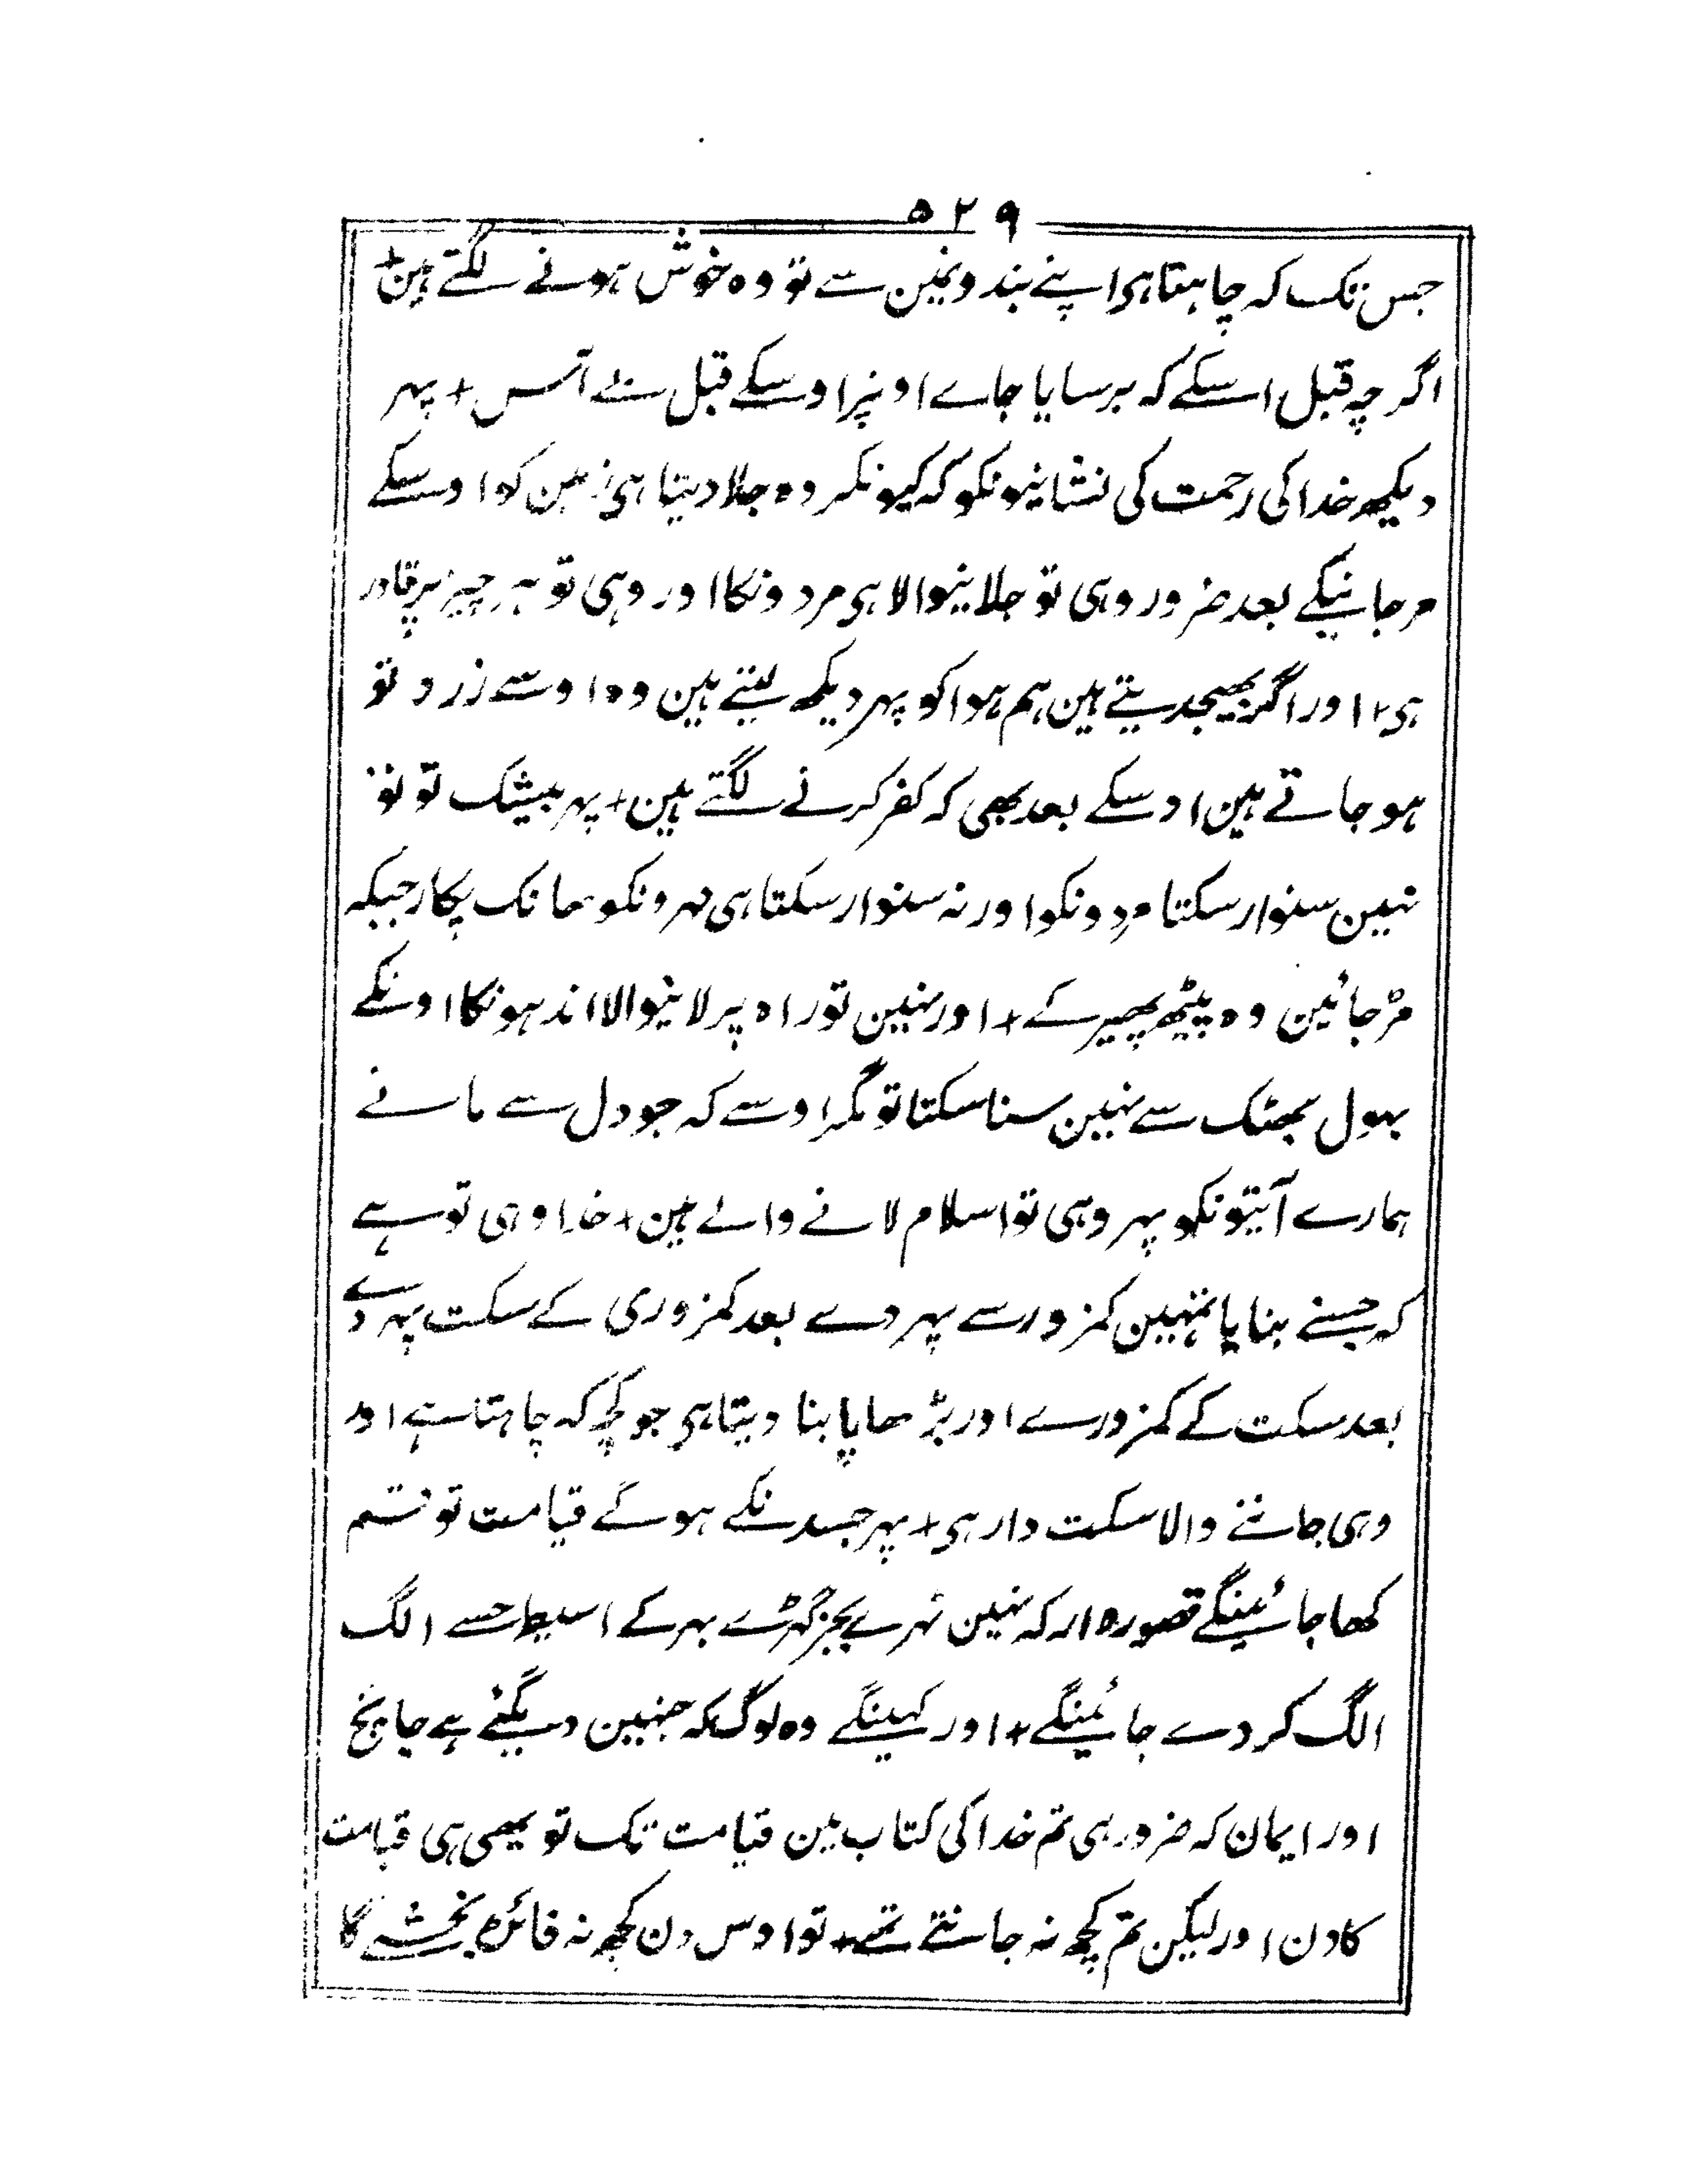 ۵۲۹
جس تک کہ چاہتا ہی اپنے بندونمین سے تو وہ خوش ہونے لگتے ہین+
اگرچہ قبل اسکے کہ برسایا جاے اونپر اوسکے قبل سے آس + پہر
دیکھ خدا کی رحمت کی نشانیونکو کہ کیونکر وہ جلا دیتا ہی زمین کو اوسکے
مر جانیکے بعد ضرور وہی تو جلانیوالا ہی مردونکا اور وہی تو ہر چیز پر قادر
ہی ۱۲ اور اگر بھیجدیتے ہین ہم ہوا کو پہر دیکھ لیتے ہین وہ اوسے زرد تو
ہو جاتے ہین اوسکے بعد بھی کہ کفر کرنے لگتے ہین + پہر بیشک تو تو
نہین سنوار سکتا مردونکو اور نہ سنوار سکتا ہی بہرونکو هانک پکار جبکہ
مڑ جائین وہ پیٹھ پھیر کے + اور نہین تو راہ پر لانیوالا اندہونکا اونکے
بہول بھٹک سے نہین سنا سکتا تو مگر اوسے کہ جو دل سے مانے
ہمارے آیتونکو پہر وہی تو اسلام لانے والے ہین + خدا وہی تو ہے
کہ جسنے بنایا تمہین کمزور سے پہر دے بعد کمزوری کے سکت پہر دے
بعد سکت کے کمزورے اور بڑھاپا بنا دیتا ہی جو کچھ کہ چاہتا ہے اور
وہی جاننے والا سکت دار ہی + پہر جسدنکے ہوگے قیامت تو قسم
کھا جائینگے قصوروار کہ نہین ٹہرے بجز گہڑے بہر کے اسیطرحسے الگ
الگ کر دے جائینگے + اور کہینگے وہ لوگ کہ جنہین دیگئے ہے جانچ
اور ایمان کہ ضرور ہی تم خدا کی کتاب مین قیامت تک تو یہی ہی قیامت
کا دن اور لیکن تم کچھ نہ جانتے تھے + تو اوس دن کچھ نہ فائدہ بخشے گا